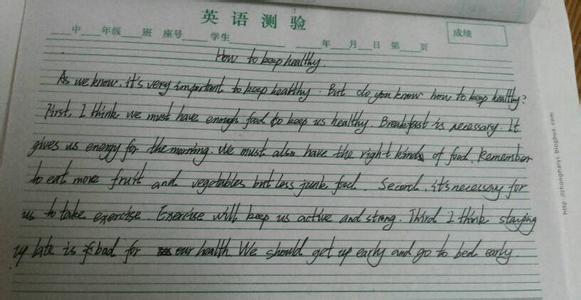 英语测验
中 年级 班 座号 学生 年 月 日 第 页
成绩
How to keep healthy.
As we know, it's very important to keep healthy. But do you know how to keep healthy?
First, I think we must have enough food to keep us healthy. Breakfast is necessary. It
gives us energy for the morning. We must also have the right kinds of food. Remember
to eat more fruit and vegetables but less junk food. Second, it's necessary for
us to take exercise. Exercise will keep us active and strong. Third I think staying
up late is bad for our health. We should get up early and go to bed early.